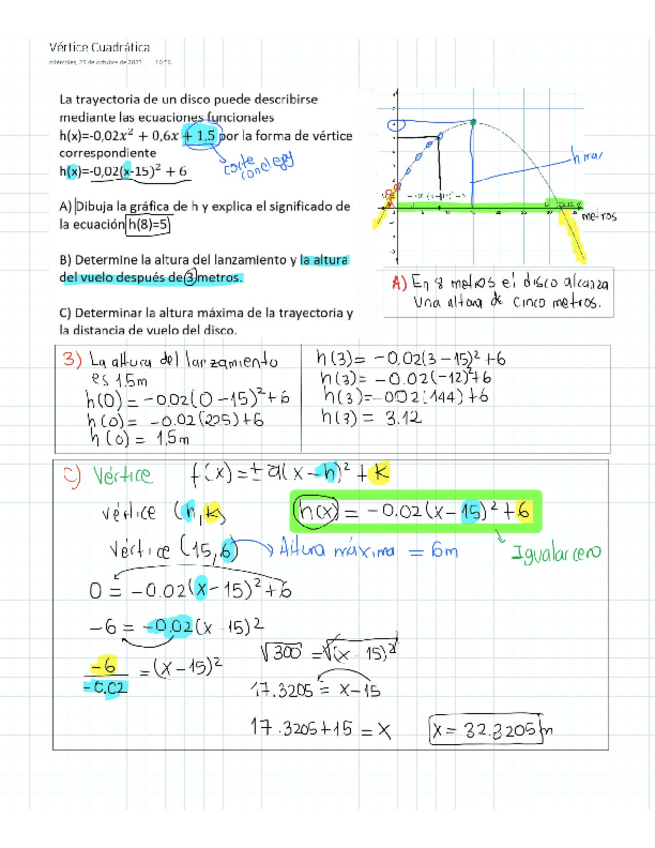 Vértice Cuadrática
miércoles, 25 de octubre de 2023
La trayectoria de un disco puede describirse
mediante las ecuaciones funcionales
h(x)=-0,02x² + 0,6x + 1,5 por la forma de vértice
correspondiente
h(x)=-0,02(x-15)² + 6
corte
con el eje y
A) Dibuja la gráfica de h y explica el significado de
la ecuación h(8)=5
B) Determine la altura del lanzamiento y la altura
del vuelo después de 3 metros.
C) Determinar la altura máxima de la trayectoria y
la distancia de vuelo del disco.
h max
metros
A) En 8 metros el disco alcanza
una altura de cinco metros.
3) La altura del lanzamiento
es 1,5m
h(0) = -0.02(0-15)²+6
h(0) = -0.02(225)+6
h(0) = 1,5m
h(3) = -0.02(3-15)²+6
h(3) = -0.02(-12)²+6
h(3) = -0.02(144)+6
h(3) = 3.12
C) Vértice f(x)=±a(x-h)²+k
vértice (h,k)
h(x) = -0.02(x-15)²+6
vértice (15,6) Altura máxima = 6m
Igualar cero
0 = -0.02(x-15)²+6
-6 = -0.02(x-15)2
-6/-0.02 = (x-15)²
√300 = √(x-15)²
17.3205 = x-15
17.3205+15 = x
x = 32.3205m